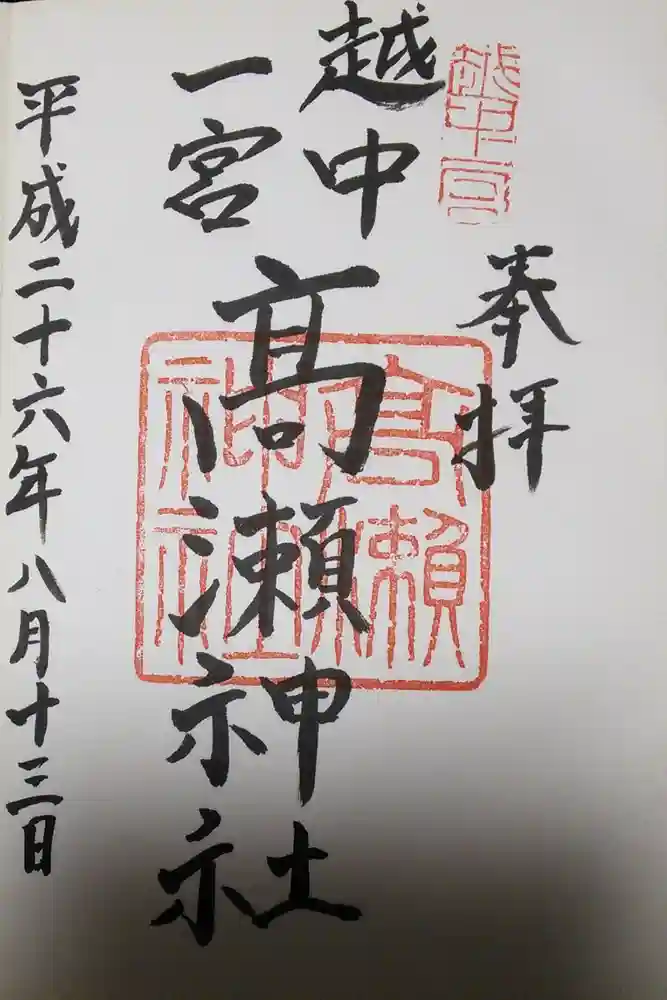 越中一宮
奉拝
越中
一宮
髙瀬神社
高瀬神社
平成二十六年八月十三日